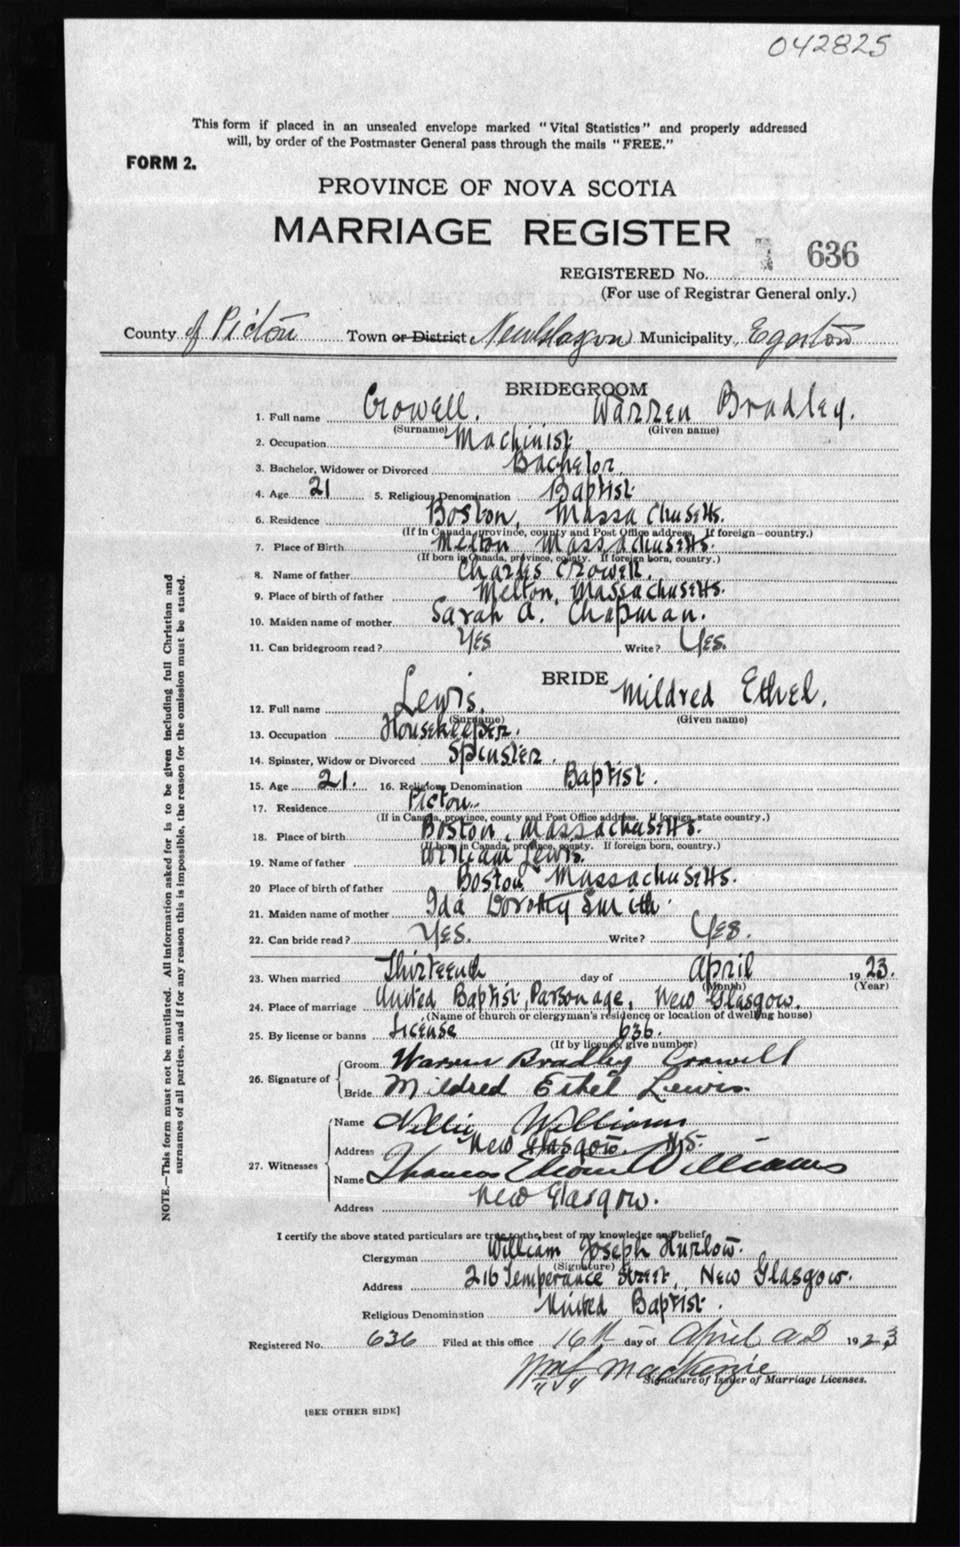 042825
This form if placed in an unsealed envelope marked "Vital Statistics" and properly addressed
will, by order of the Postmaster General pass through the mails "FREE."
FORM 2.
PROVINCE OF NOVA SCOTIA
MARRIAGE REGISTER
REGISTERED No. 636
(For use of Registrar General only.)
County of Pictou Town or District New Glasgow Municipality Egerton
BRIDEGROOM
1. Full name Crowell. Warren Bradley.
(Surname) (Given name)
2. Occupation Machinist
3. Bachelor, Widower or Divorced Bachelor
4. Age 21 5. Religious Denomination Baptist
6. Residence Boston, Massachusetts.
(If in Canada, province, county and Post Office address. If foreign—country.)
7. Place of Birth Melton Massachusetts.
(If born in Canada, province, county. If foreign born, country.)
8. Name of father Charles Crowell.
9. Place of birth of father Melton, Massachusetts.
10. Maiden name of mother Sarah A. Chapman.
11. Can bridegroom read? Yes Write? Yes.
BRIDE
12. Full name Lewis. Mildred Ethel.
(Surname) (Given name)
13. Occupation Housekeeper.
14. Spinster, Widow or Divorced Spinster.
15. Age 21. 16. Religious Denomination Baptist.
17. Residence Pictou
(If in Canada, province, county and Post Office address. If foreign, state country.)
18. Place of birth Boston, Massachusetts.
(If born in Canada, province, county. If foreign born, country.)
19. Name of father William Lewis.
20 Place of birth of father Boston Massachusetts.
21. Maiden name of mother Ida Dorothy Smith.
22. Can bride read? Yes. Write? Yes.
23. When married Thirteenth day of April 1923.
(Month) (Year)
24. Place of marriage United Baptist, Parsonage, New Glasgow.
(Name of church or clergyman's residence or location of dwelling house)
25. By license or banns License 636.
(If by license, give number)
26. Signature of Groom Warren Bradley Crowell
Bride Mildred Ethel Lewis
27. Witnesses Name Nellie Williams
Address New Glasgow. N.S.
Name Thomas Edwin Williams
Address New Glasgow.
I certify the above stated particulars are true to the best of my knowledge and belief,
Clergyman William Joseph Hurlow.
(Signature)
Address 216 Temperance Street, New Glasgow.
Religious Denomination United Baptist.
Registered No. 636 Filed at this office 16th day of April AD 1923
Mackenzie
Signature of Issuer of Marriage Licenses.
[SEE OTHER SIDE]
NOTE.—This form must not be mutilated. All information asked for is to be given including full Christian and
surnames of all parties, and if for any reason this is impossible, the reason for the omission must be stated.